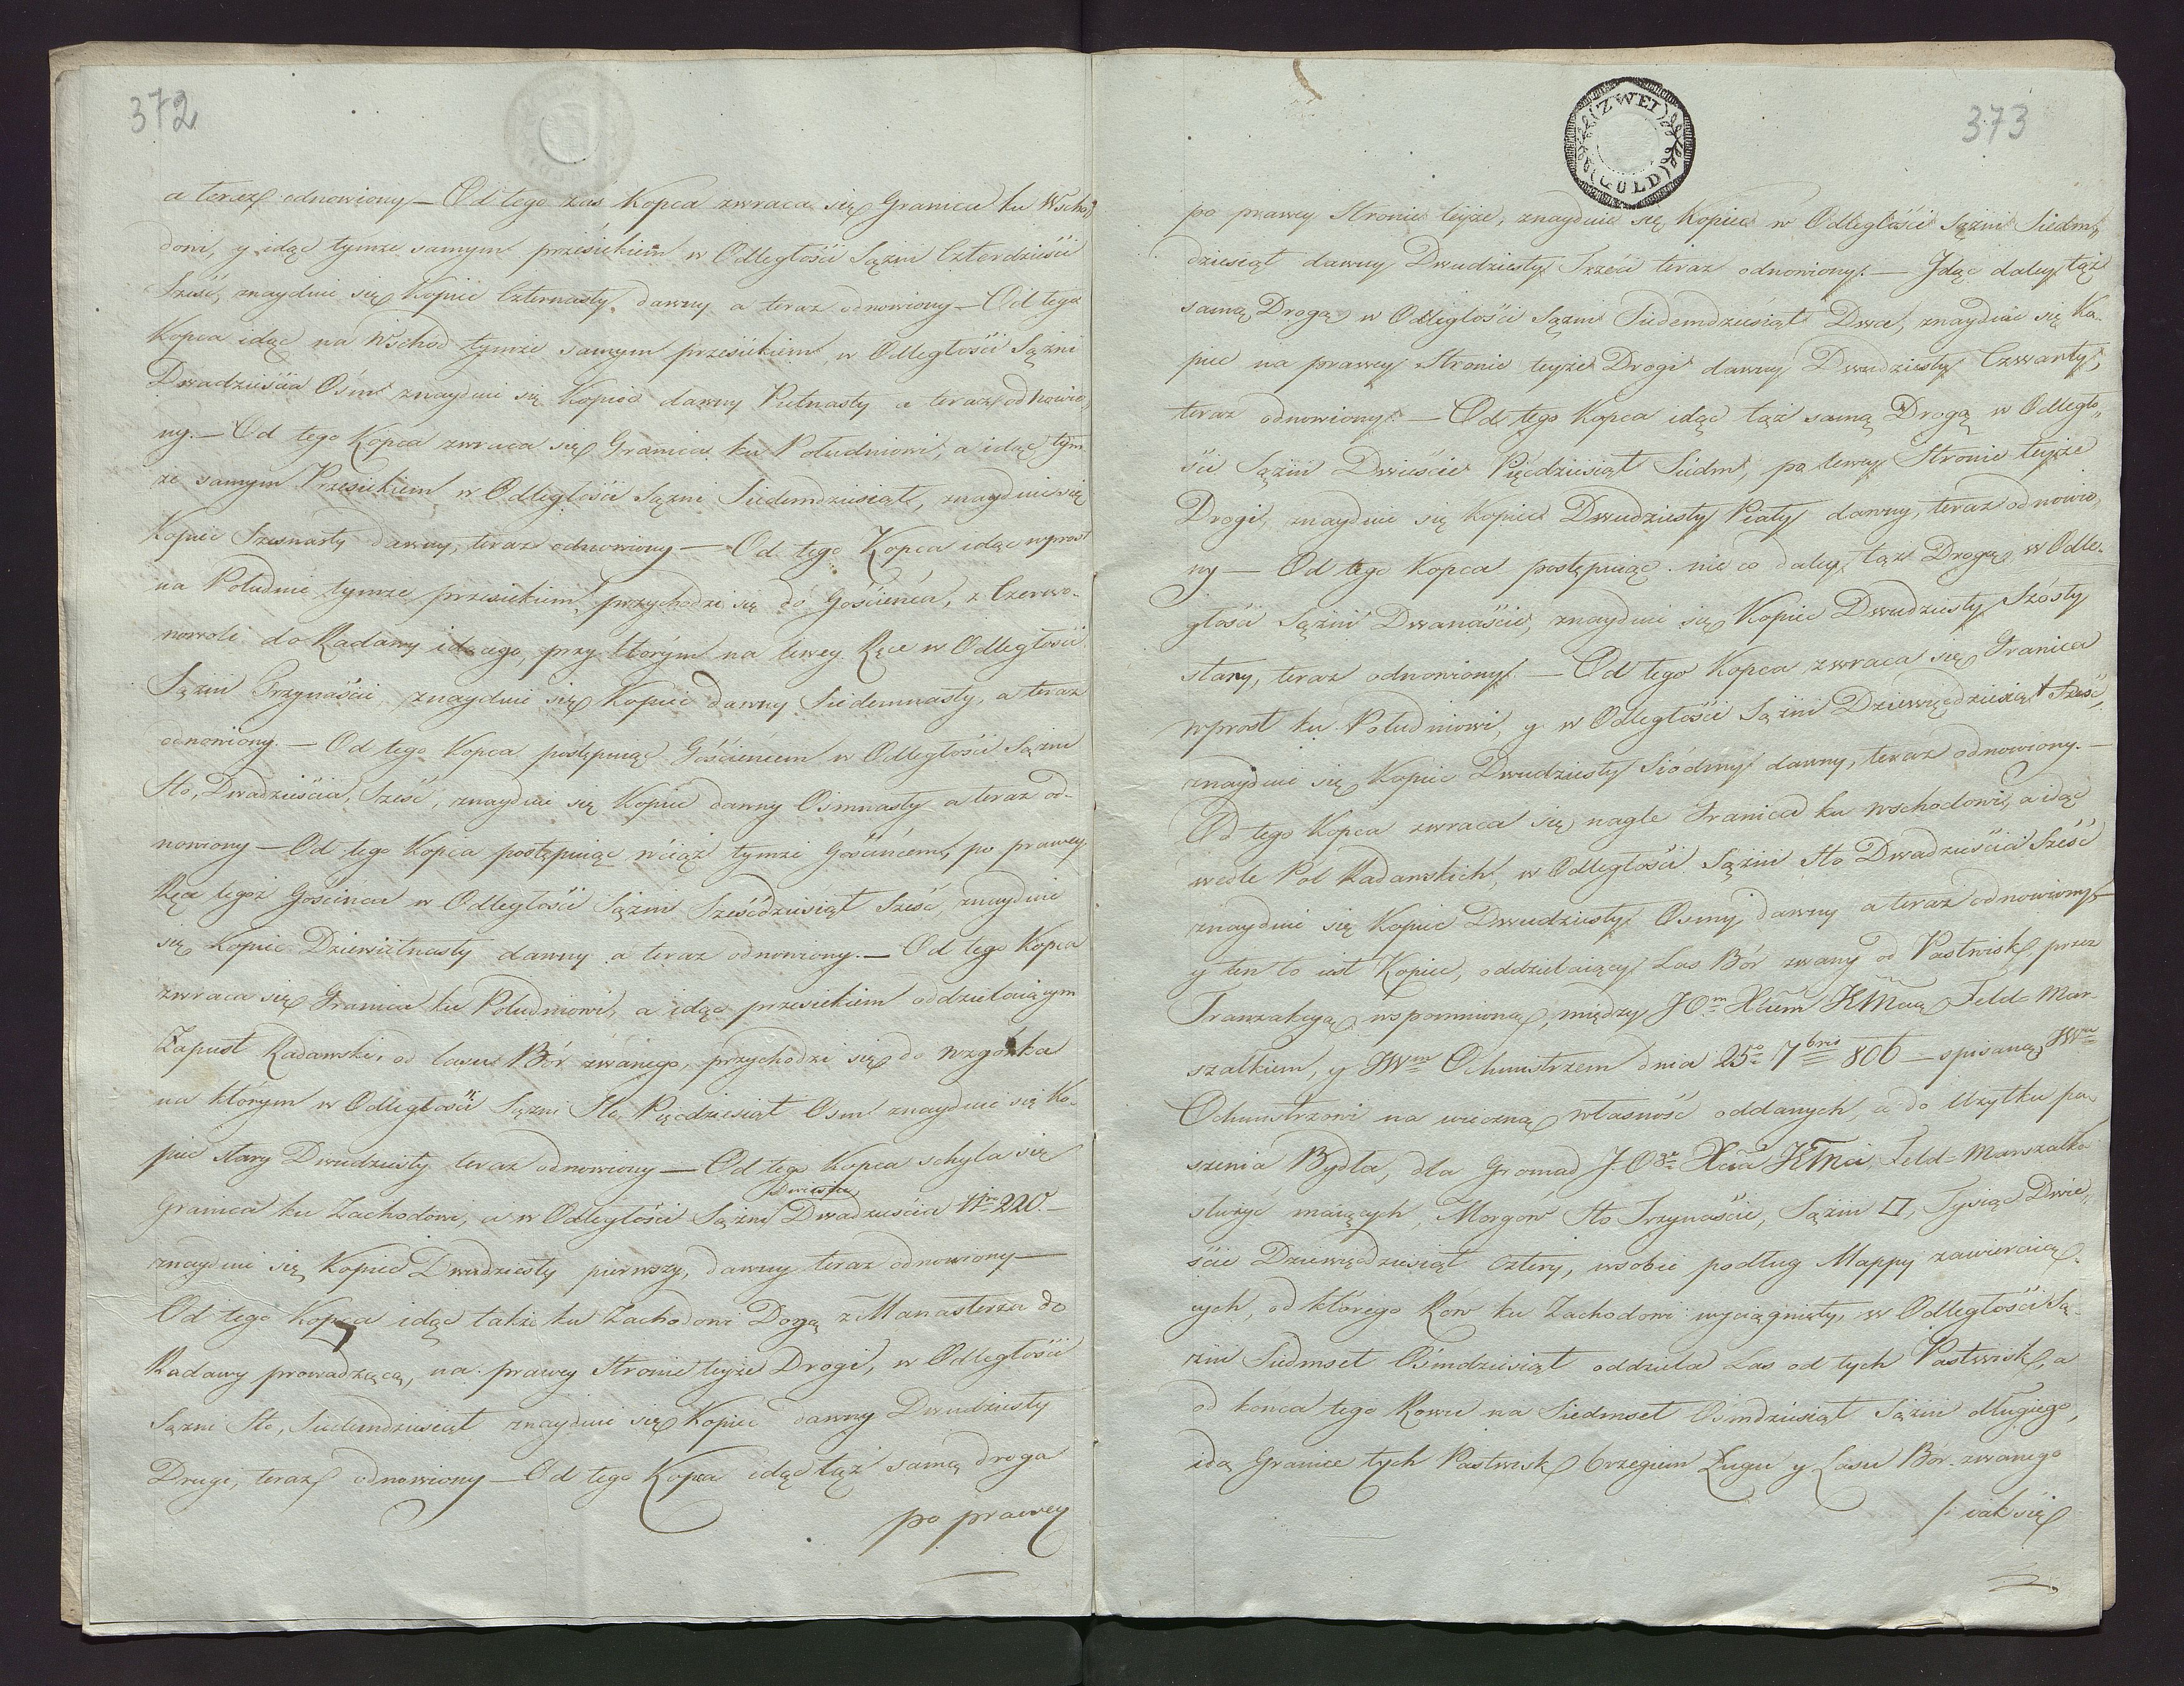 372
a teraz odnowiony — Od tego zaś Kopca zwraca się Granica ku Wscho„
dowi, y idąc tymże samym przesiekiem w Odległości Sążni Czterdzieści
Sześć, znayduie się Kopiec Czternasty dawny a teraz odnowiony — Od tego
Kopca idąc na Wschod tymże samym przesiekiem, w Odległości Sążni
Dwadzieścia Ośm znayduie się Kopiec dawny Pietnasty a teraz odnowio„
ny. — Od tego Kopca zwraca się Granica ku Południowi, a idąc tym
że samym Przesiekiem w Odległości Sążni Siedemdziesiąt, znayduie się
Kopiec Szesnasty dawny, teraz odnowiony — Od tego Kopca idąc wprost
na Południe tymże przesiekiem, przychodzi się do Gościeńca, z Czerwo-
nowoli do Radawy idącego, przy którym na lewey Ręce w Odległości
Sążni Trzynaście, znayduie się Kopiec dawny Siedemnasty, a teraz
odnowiony. — Od tego Kopca postępuiąc Gościeńcem w Odległości Sążni
Sto, Dwadzieścia, Sześć, znayduie się Kopiec dawny Osimnasty a teraz od-
nowiony — Od tego Kopca postępuiąc wciąż tymże Gościńcem, po prawey
Ręce tegoż Gościńca w Odległości Sążni Sześćdziesiąt Sześć, znayduie
się Kopiec Dziewiętnasty dawny a teraz odnowiony. — Od tego Kopca
zwraca się Granica ku Południowi, a idąc przesiekiem oddzielaiącym
Zapust Radawski, od lasu Bór zwanego, przychodzi się do wzgórka
na którym w Odległości Sążni Sto, Pięćdziesiąt Osm znayduie się Ko-
piec stary Dwudziesty teraz odnowiony — Od tego Kopca schyla się
Granica ku Zachodowi, a w Odległości Sążni Dwieście Dwadzieścia Nro 220. —
znayduie się Kopiec Dwudziesty pierwszy, dawny teraz odnowiony —
Od tego Kopca idąc także ku Zachodowi Drogą z Manasterza do
Radawy prowadzącą, na prawey Stronie teyże Drogi, w Odległości
Sążni Sto, Siedemdziesiąt znayduie się Kopiec dawny Dwudziesty
Drugi, teraz odnowiony — Od tego Kopca idąc tąż samą drogą
po prawey
ZWEI
GULD
373
po prawey Stronie teyże, znayduie się Kopiec w Odległości Sążni Siedm„
dziesiąt dawny Dwudziesty Trzeci teraz odnowiony. — Jdąc daley tąż
samą Drogą w Odległości Sążni Siedemdziesiąt Dwa, znayduie się Ko-
piec na prawey Stronie teyże Drogi dawny Dwudziesty Czwarty,
teraz odnowiony. — Od tego Kopca idąc tąż samą Drogą w Odległo„
ści Sążni Dwieście Pięćdziesiąt Siedm, po lewey Stronie teyże
Drogi, znayduie się Kopiec Dwudziesty Piąty dawny, teraz odnowio„
ny — Od tego Kopca postępuiąc nieco daley tąż Drogą, w Odle-
głości Sążni Dwanaście, znayduie się Kopiec Dwudziesty Szósty
stary, teraz odnowiony. — Od tego Kopca zwraca się Granica
wprost ku Południowi, y w Odległości Sążni Dziewięćdziesiąt Sześć,
znayduie się Kopiec Dwudziesty Siódmy dawny, teraz odnowiony. —
Od tego Kopca zwraca się nagle Granica ku wschodowi, a idąc
wedle Pól Radawskich, w Odległości Sążni Sto Dwadzieścia Sześć
znayduie się Kopiec Dwudziesty Osmy dawny a teraz odnowiony —
y ten to iest Kopiec, oddzielaiący Las Bór zwany od Pastwisk przez
Tranzakcyą wspomnioną, między JOm Xciem JKMcią Feld-Mar-
szałkiem, y JWm Ochmistrzem dnia 25o 7bris 806 — spisaną, JWu
Ochmistrzowi na wieczną własność oddanych, a do Użytku pa-
szenia Bydła, dla Gromad J.O.go Xcia JKMci, Feld-Marszałka
służyć maiących, Morgów Sto Trzynaście, Sążni □, Tysiąc Dwie„
ście Dziewięćdziesiąt cztery, w sobie podług Mappy zawieraią„
cych, od którego Rów ku Zachodowi wyciągnięty, w Odległości Są-
żni Siedmset Ośmdziesiąt oddziela Las od tych Pastwisk, a
od końca tego Rowu na Siedmset Ośmdziesiąt Sążni długiego,
idą Granice tych Pastwisk brzegiem Ługu y Lasu Bór zwanego
/: iak się